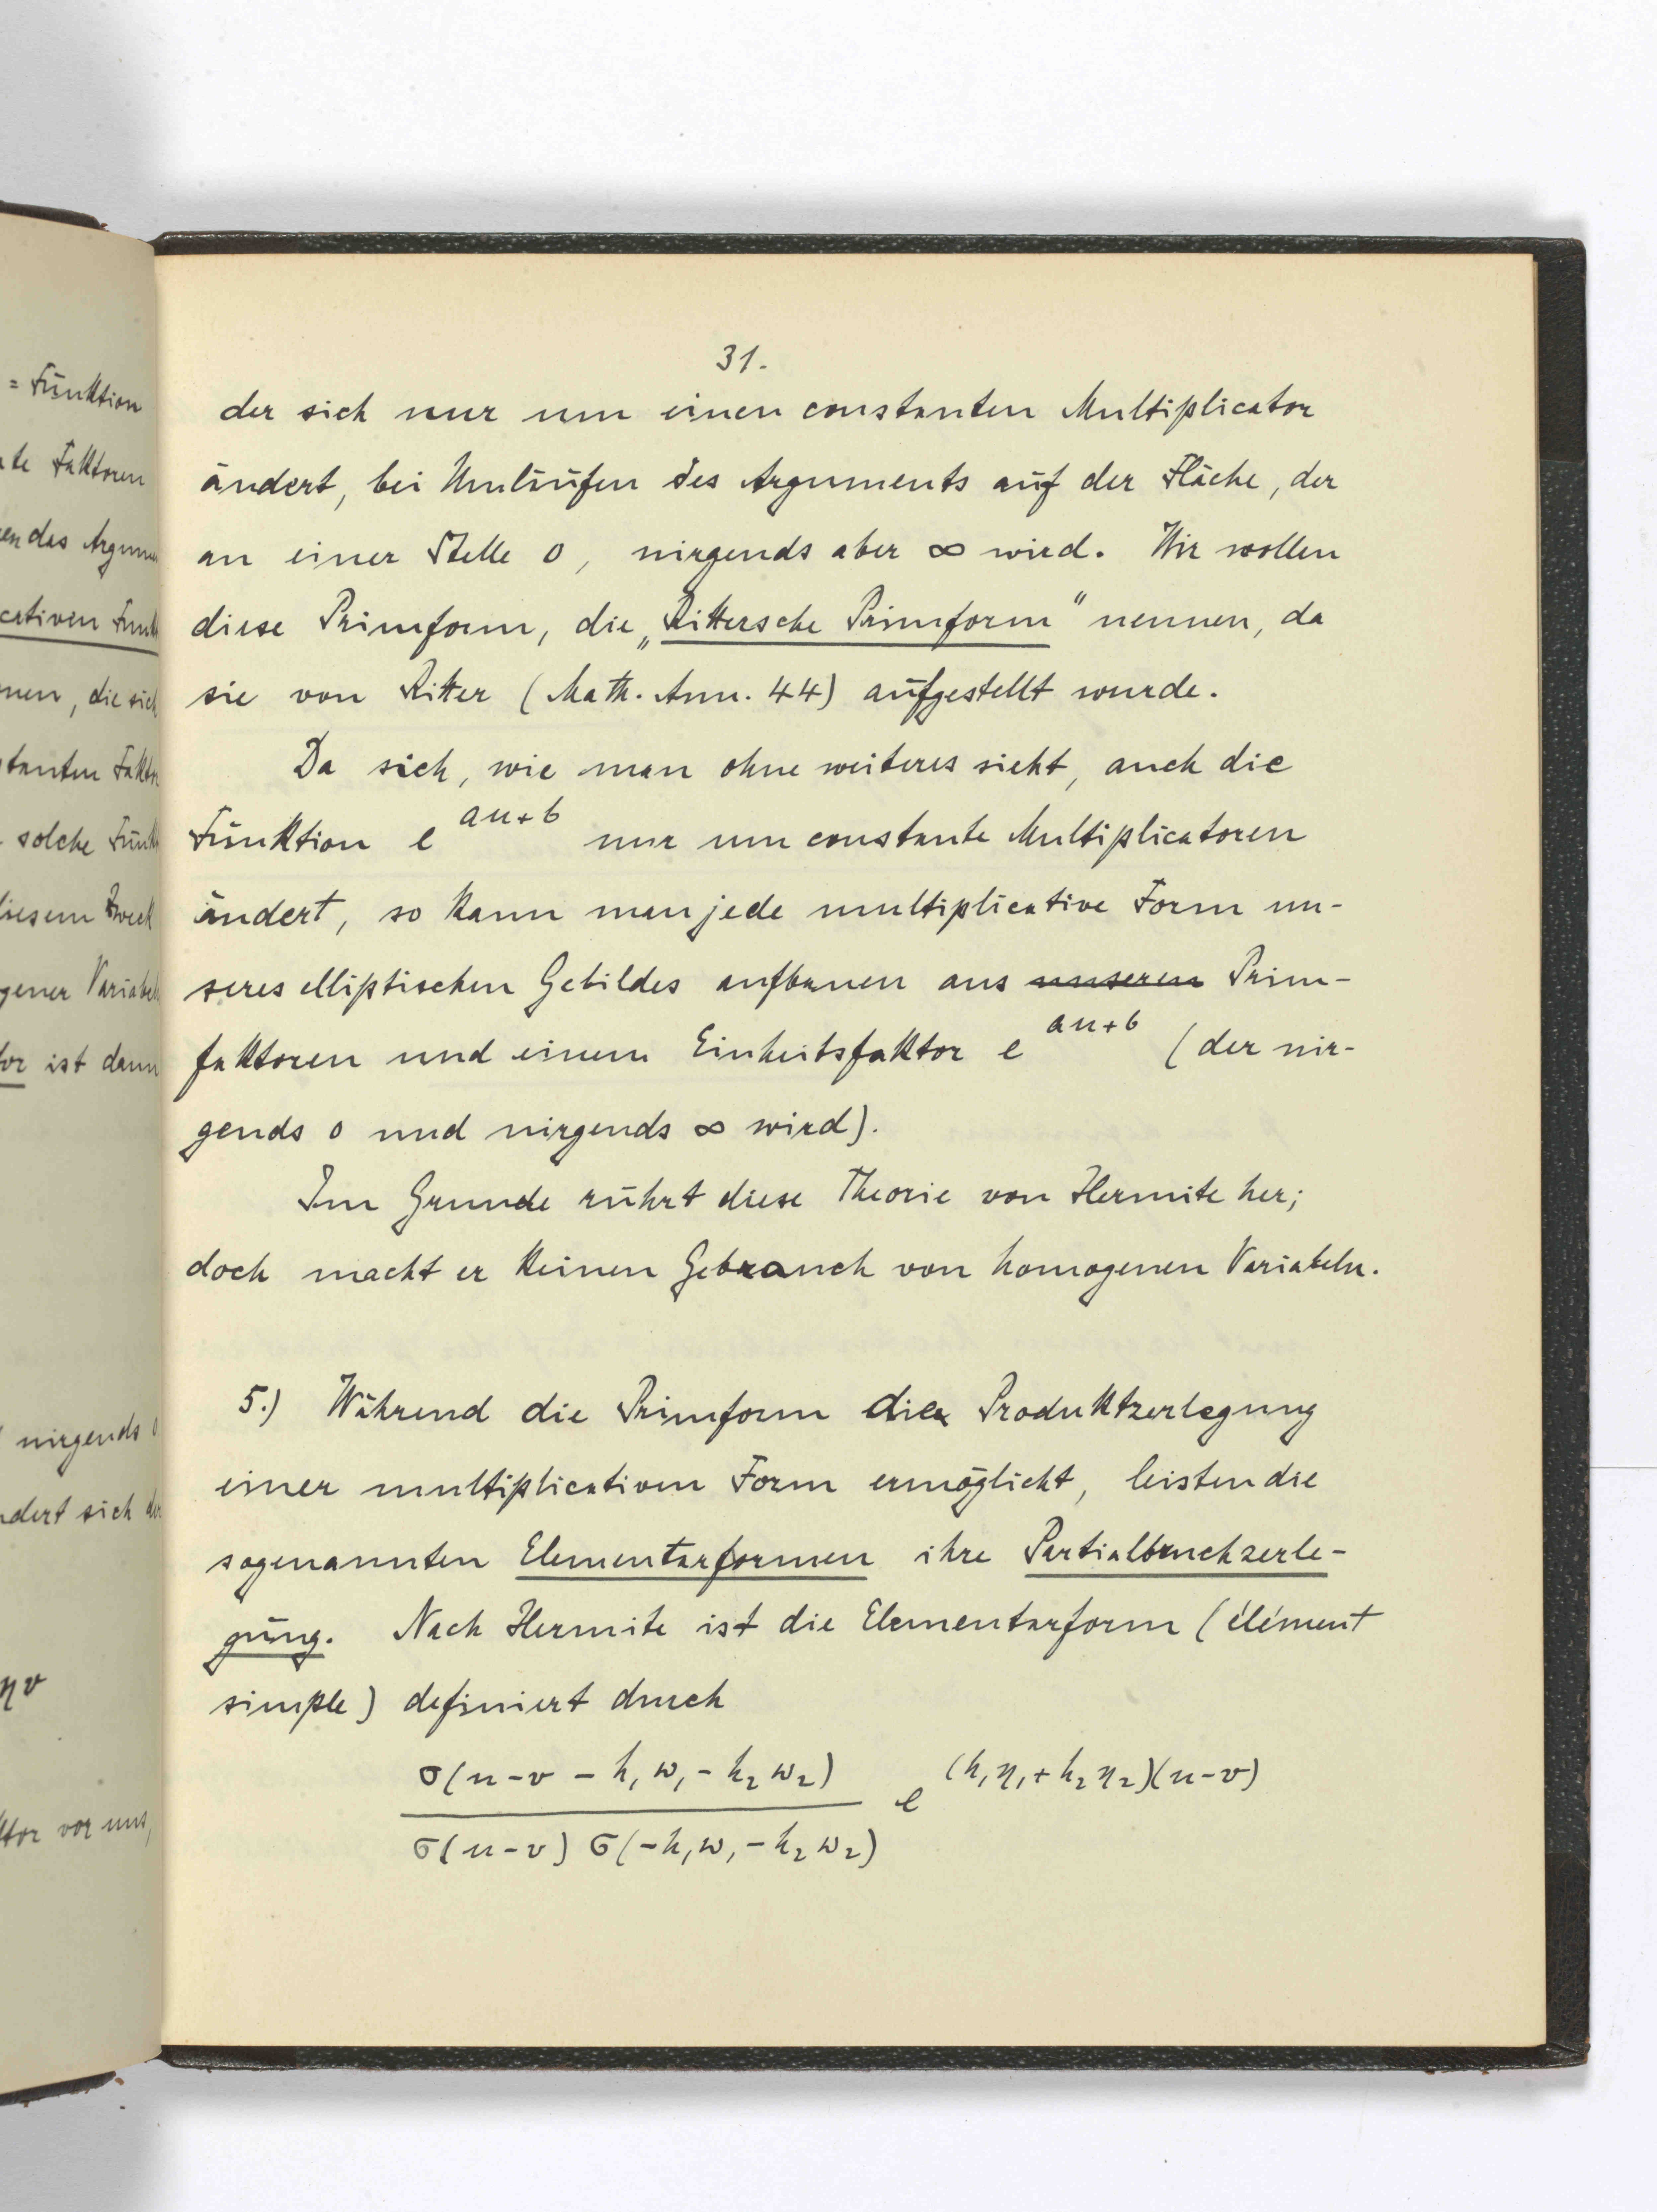 = Funktion
te Faktoren
en das Argum
cativen Funk
nen, die sich
stanten Fakto
solche Funk
diesem Zweck
gener Variabel
or ist dann
nirgends 0
ndert sich
ηv
ktor vor uns,
31.
der sich nur um einen constanten Multiplicator
ändert, bei Umläufen des Arguments auf der Fläche, der
an einer Stelle 0, nirgends aber ∞ wird. Wir wollen
diese Primform, die „Rittersche Primform" nennen, da
sie von Ritter (Math. Ann. 44) aufgestellt wurde.
Da sich, wie man ohne weiteres sieht, auch die
Funktion e^{au+b} nur um constante Multiplicatoren
ändert, so kann man jede multiplicative Form un-
seres elliptischen Gebildes aufbauen aus unseren Prim-
faktoren und einem Einheitsfaktor e^{au+b} (der nir-
gends 0 und nirgends ∞ wird).
Im Grunde rührt diese Theorie von Hermite her;
doch macht er keinen Gebrauch von homogenen Variabeln.
5.) Während die Primform die Produktzerlegung
einer multiplicativen Form ermöglicht, leisten die
sogenannten Elementarformen ihre Partialbruchzerle-
gung. Nach Hermite ist die Elementarform (élément
simple) definiert durch
σ(u-v - h₁w₁ - h₂w₂) e^{(h₁η₁+h₂η₂)(u-v)}
σ(u-v) σ(-h₁w₁ - h₂w₂)